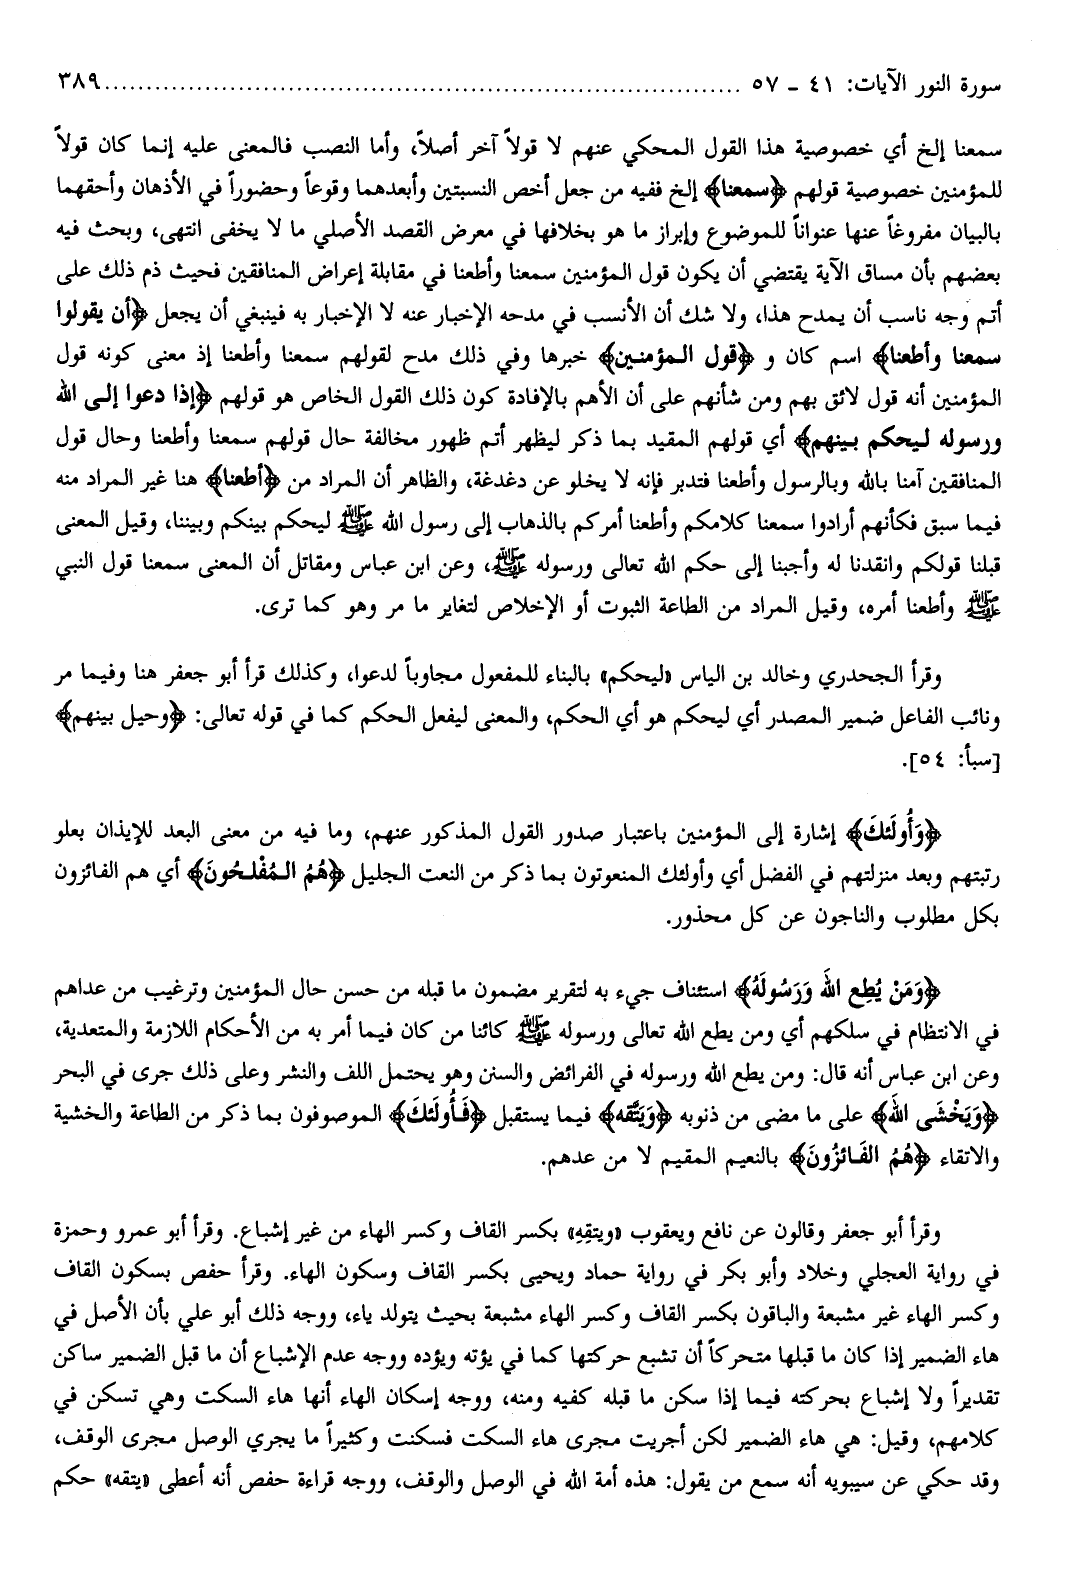 سورة النور الآيات: ٤١ - ٥٧ ........................................................................... ٣٨٩
سمعنا إلخ أي خصوصية هذا القول المحكي عنهم لا قولاً آخر أصلاً، وأما النصب فالمعنى عليه إنما كان قولاً
للمؤمنين خصوصية قولهم ﴿سمعنا﴾ إلخ ففيه من جعل أخص النسبتين وأبعدهما وقوعاً وحضوراً في الأذهان وأحقهما
بالبيان مفروغاً عنها عنواناً للموضوع وإبراز ما هو بخلافها في معرض القصد الأصلي ما لا يخفى انتهى، وبحث فيه
بعضهم بأن مساق الآية يقتضي أن يكون قول المؤمنين سمعنا وأطعنا في مقابلة إعراض المنافقين فحيث ذم ذلك على
أتم وجه ناسب أن يمدح هذا، ولا شك أن الأنسب في مدحه الإخبار عنه لا الإخبار به فينبغي أن يجعل ﴿أن يقولوا
سمعنا وأطعنا﴾ اسم كان و ﴿قول المؤمنين﴾ خبرها وفي ذلك مدح لقولهم سمعنا وأطعنا إذ معنى كونه قول
المؤمنين أنه قول لائق بهم ومن شأنهم على أن الأهم بالإفادة كون ذلك القول الخاص هو قولهم ﴿إذا دعوا إلى الله
ورسوله ليحكم بينهم﴾ أي قولهم المقيد بما ذكر ليظهر أتم ظهور مخالفة حال قولهم سمعنا وأطعنا وحال قول
المنافقين آمنا بالله وبالرسول وأطعنا فتدبر فإنه لا يخلو عن دغدغة، والظاهر أن المراد من ﴿أطعنا﴾ هنا غير المراد منه
فيما سبق فكأنهم أرادوا سمعنا كلامكم وأطعنا أمركم بالذهاب إلى رسول الله ﷺ ليحكم بينكم وبيننا، وقيل المعنى
قبلنا قولكم وانقدنا له وأجبنا إلى حكم الله تعالى ورسوله ﷺ، وعن ابن عباس ومقاتل أن المعنى سمعنا قول النبي
ﷺ وأطعنا أمره، وقيل المراد من الطاعة الثبوت أو الإخلاص لتغاير ما مر وهو كما ترى.
وقرأ الجحدري وخالد بن الياس «ليحكم» بالبناء للمفعول مجاوباً لدعوا، وكذلك قرأ أبو جعفر هنا وفيما مر
ونائب الفاعل ضمير المصدر أي ليحكم هو أي الحكم، والمعنى ليفعل الحكم كما في قوله تعالى: ﴿وحيل بينهم﴾
[سبأ: ٥٤].
﴿وَأُولَئكَ﴾ إشارة إلى المؤمنين باعتبار صدور القول المذكور عنهم، وما فيه من معنى البعد للإيذان بعلو
رتبتهم وبعد منزلتهم في الفضل أي وأولئك المنعوتون بما ذكر من النعت الجليل ﴿هُمُ المُفْلحُونَ﴾ أي هم الفائزون
بكل مطلوب والناجون عن كل محذور.
﴿وَمَنْ يُطِع اللهَ وَرَسُولَهُ﴾ استئناف جيء به لتقرير مضمون ما قبله من حسن حال المؤمنين وترغيب من عداهم
في الانتظام في سلكهم أي ومن يطع الله تعالى ورسوله ﷺ كائنا من كان فيما أمر به من الأحكام اللازمة والمتعدية،
وعن ابن عباس أنه قال: ومن يطع الله ورسوله في الفرائض والسنن وهو يحتمل اللف والنشر وعلى ذلك جرى في البحر
﴿وَيَخْشَى اللهَ﴾ على ما مضى من ذنوبه ﴿وَيَتَّقه﴾ فيما يستقبل ﴿فَأُولَئكَ﴾ الموصوفون بما ذكر من الطاعة والخشية
والاتقاء ﴿هُمُ الفَائزُونَ﴾ بالنعيم المقيم لا من عدهم.
وقرأ أبو جعفر وقالون عن نافع ويعقوب «ويتقِهِ» بكسر القاف وكسر الهاء من غير إشباع. وقرأ أبو عمرو وحمزة
في رواية العجلي وخلاد وأبو بكر في رواية حماد ويحيى بكسر القاف وسكون الهاء. وقرأ حفص بسكون القاف
وكسر الهاء غير مشبعة والباقون بكسر القاف وكسر الهاء مشبعة بحيث يتولد ياء، ووجه ذلك أبو علي بأن الأصل في
هاء الضمير إذا كان ما قبلها متحركاً أن تشبع حركتها كما في يؤته ويؤده ووجه عدم الإشباع أن ما قبل الضمير ساكن
تقديراً ولا إشباع بحركته فيما إذا سكن ما قبله كفيه ومنه، ووجه إسكان الهاء أنها هاء السكت وهي تسكن في
كلامهم، وقيل: هي هاء الضمير لكن أجريت مجرى هاء السكت فسكنت وكثيراً ما يجري الوصل مجرى الوقف،
وقد حكي عن سيبويه أنه سمع من يقول: هذه أمة الله في الوصل والوقف، ووجه قراءة حفص أنه أعطى «يتقه» حكم